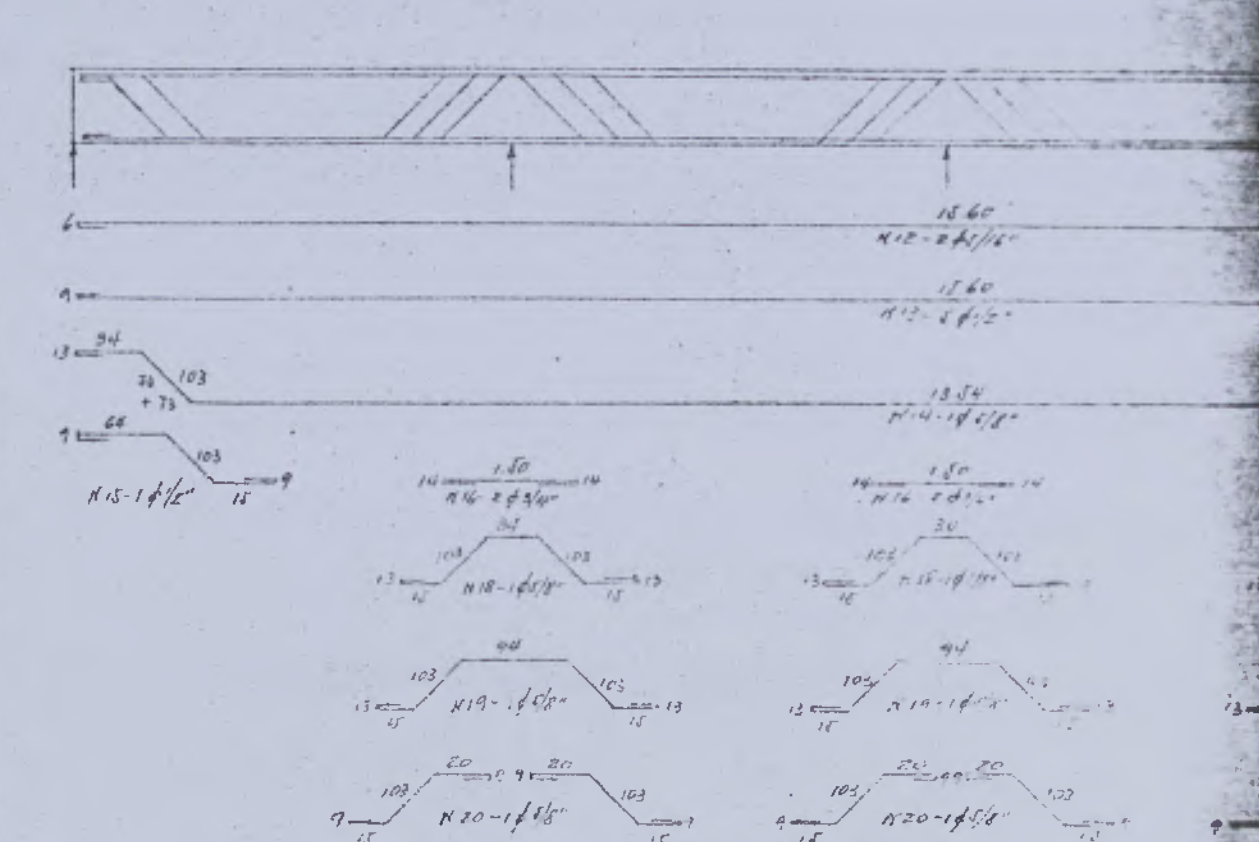 6
15 60
N12 - 2 ϕ 5/16"
9
15 60
N13 - 5 ϕ 1/2"
13 94
103
+ 73
13 54
N14 - 1 ϕ 5/8"
9 64
103
15 9
N15 - 1 ϕ 1/2"
14 1.50 14
N16 - 2 ϕ 3/4"
14 1.50 14
N16 - 2 ϕ
103 103
13 15 N18 - 1 ϕ 5/8" 15 13
30
103 103
13 15
94
103 103
13 15 N19 - 1 ϕ 5/8" 15 13
94
103
13 15 N19 - 1 ϕ 5/8"
13
20 9 9 20
103 103
9 15 N20 - 1 ϕ 5/8" 15 9
20 99 20
103 103
9 15 N20 - 1 ϕ 5/8" 15
9